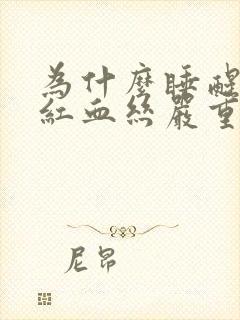 為什麼睡醒
紅血絲嚴重
尼昂